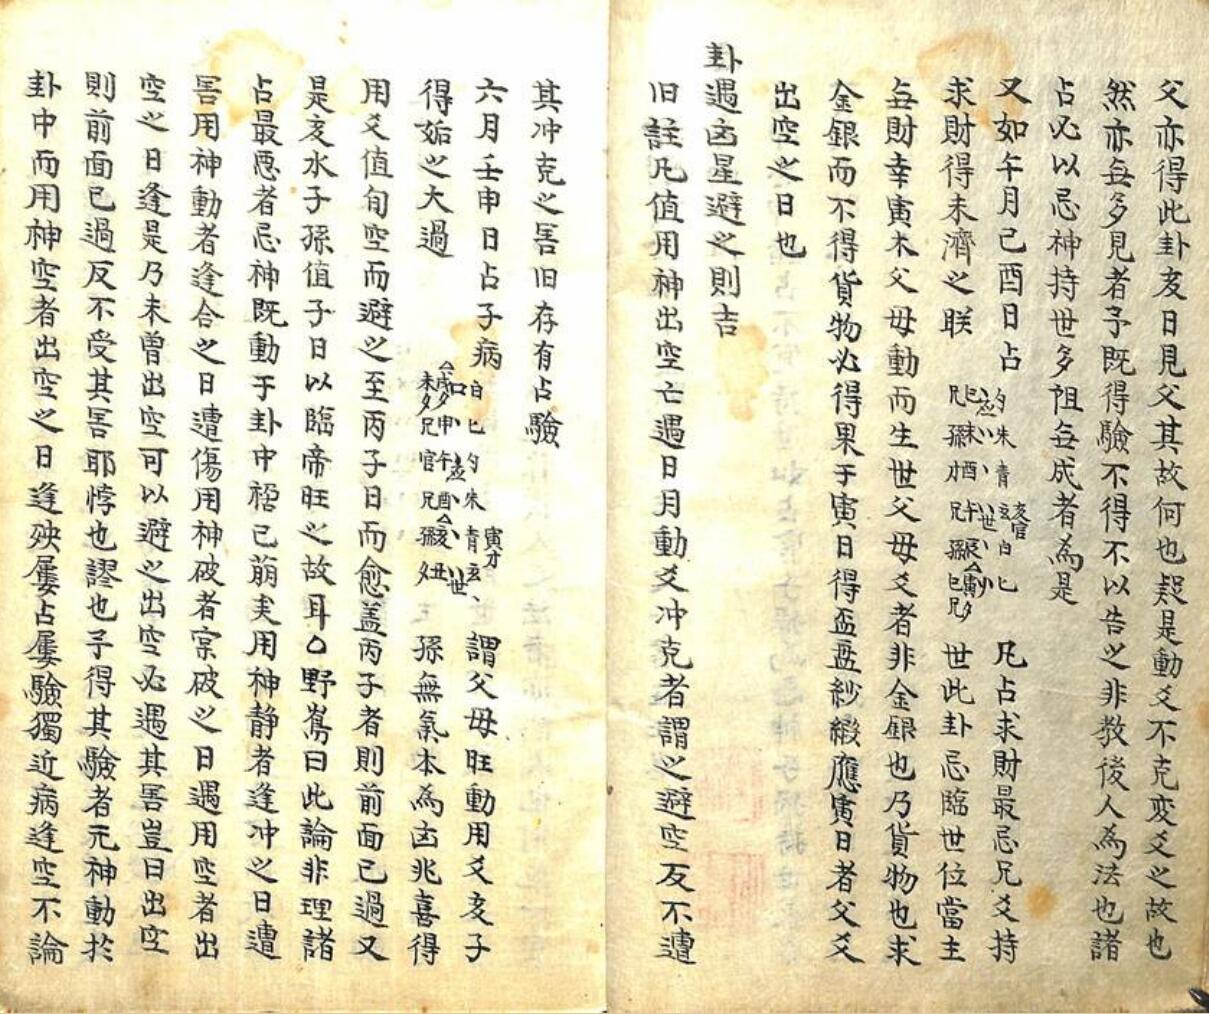 父亦得此卦亥日見父其故何也疑是動爻不克変爻之故也
然亦每多見者予既得驗不得不以告之非教後人為法也諸
占必以忌神持世多阻每成者為是
又如午月己酉日占
凡占求財最忌兄爻持
求財得未濟之睽
世此卦忌臨世位當主
每財幸寅木父母動而生世父母爻者非金銀也乃貨物也求
金銀而不得貨物必得果于寅日得盔盔紗緞應寅日者父爻
出空之日也
卦遇凶星避之則吉
旧註凡值用神出空亡遇日月動爻冲克者謂之避空反不遭
其冲克之害旧存有占驗
六月壬申日占子病
謂父母旺動用爻亥子
得姤之大過
孫無氣本為凶兆喜得
用爻值旬空而避之至丙子日而愈盖丙子者則前面已過又
是亥水子孫值子日以臨帝旺之故耳○野鶴曰此論非理諸
占最忌者忌神既動于卦中禍已萌矣用神静者逢冲之日遭
害用神動者逢合之日遭傷用神破者寔破之日遇用空者出
空之日逢是乃未曾出空可以避之出空必遇其害豈曰出空
則前面已過反不受其害耶悖也謬也子得其驗者元神動於
卦中而用神空者出空之日逢殃屢占屢驗獨近病逢空不論